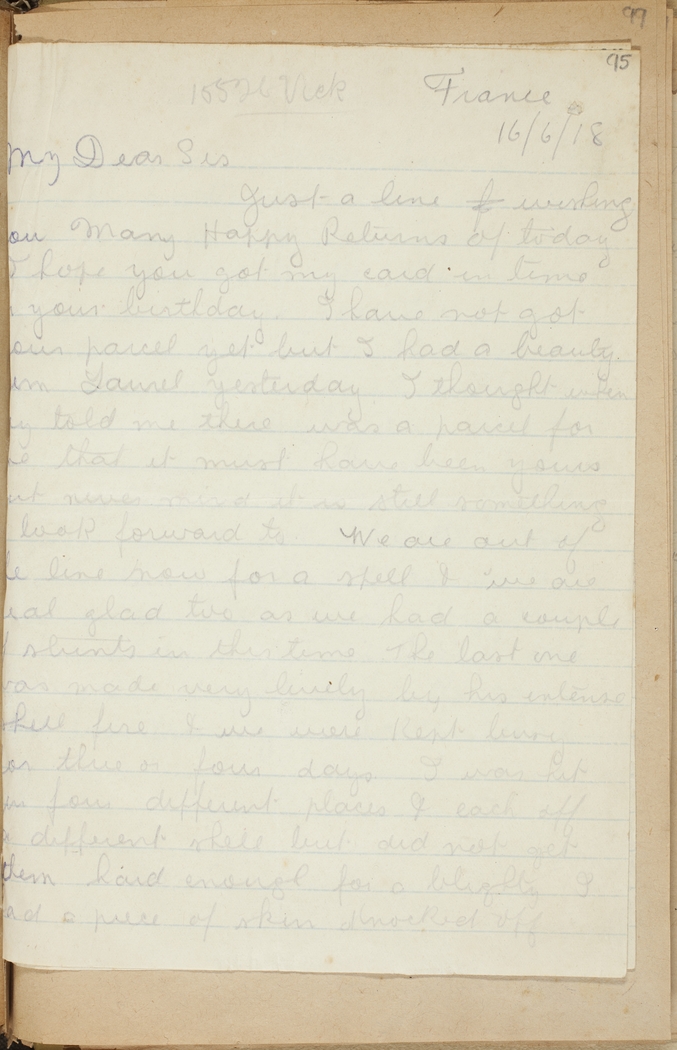 97
95
France
16/6/18
My Dear Sis
Just a line & wishing
ou Many Happy Returns of today
I hope you got my card in time
your birthday. I have not got
our parcel yet but I had a beauty
om Laurel yesterday I thought when
ey told me there was a parcel for
me that it must have been yours
ut never mind it is still something
look forward to. We are out of
he line now for a spell & we are
eal glad too as we had a couple
f stunts in this time The last one
was made very lively by his intense
shell fire & we were kept busy
for three or four days I was hit
in four different places & each off
a different shell but did not get
them hard enough for a blighty I
ad a piece of skin knocked off